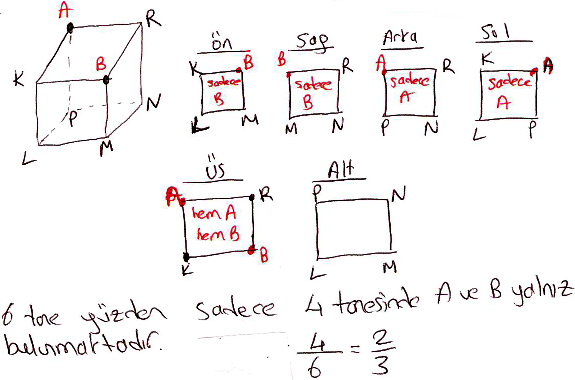 A
R
K
B
P
N
L
M
Ön
K B
sadece
B
L M
Sağ
B R
sadece
B
M N
Arka
A R
sadece
A
P N
Sol
K A
sadece
A
L P
Üs
A R
hem A
hem B
K B
Alt
P N
L M
6 tane yüzden sadece 4 tanesinde A ve B yalnız
bulunmaktadır.
4/6 = 2/3